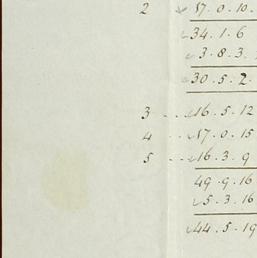 2 17.0.10.
34.1.6
3.8.3.
30.5.2.
3 .. 16.5.12
4 .. 17.0.15
5 .. 16.3.9
49.9.16
5.3.16
44.5.19